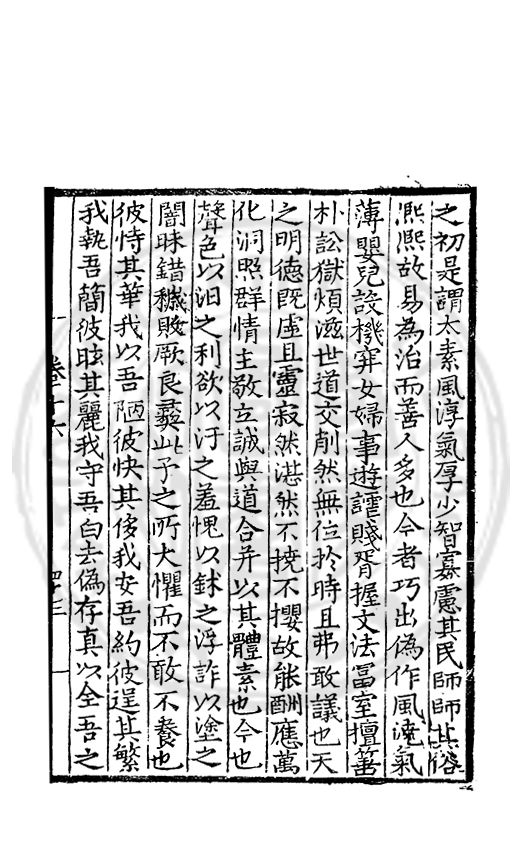 之初是謂太素風淳氣厚少智寡慮其民師師其俗
熙熙故易為治而善人多也今者巧出偽作風澆氣
薄嬰兒設機穽女婦事遊讙賤胥握文法富室擅籉
朴訟獄煩滋世道交削然無位扵時且弗敢議也天
之明德既虛且靈寂然湛然不撓不攖故能酬應萬
化洞照群情主敬立誠與道合并以其體素也今也
聲色以汩之利欲以汙之羞愧以鉥之浮詐以塗之
闇昧錯穢賊厥良彛此予之所大懼而不敢不養也
彼恃其華我以吾陋彼快其侈我安吾約彼逞其繁
我執吾簡彼眩其麗我守吾白去偽存真以全吾之
卷十六
四十三